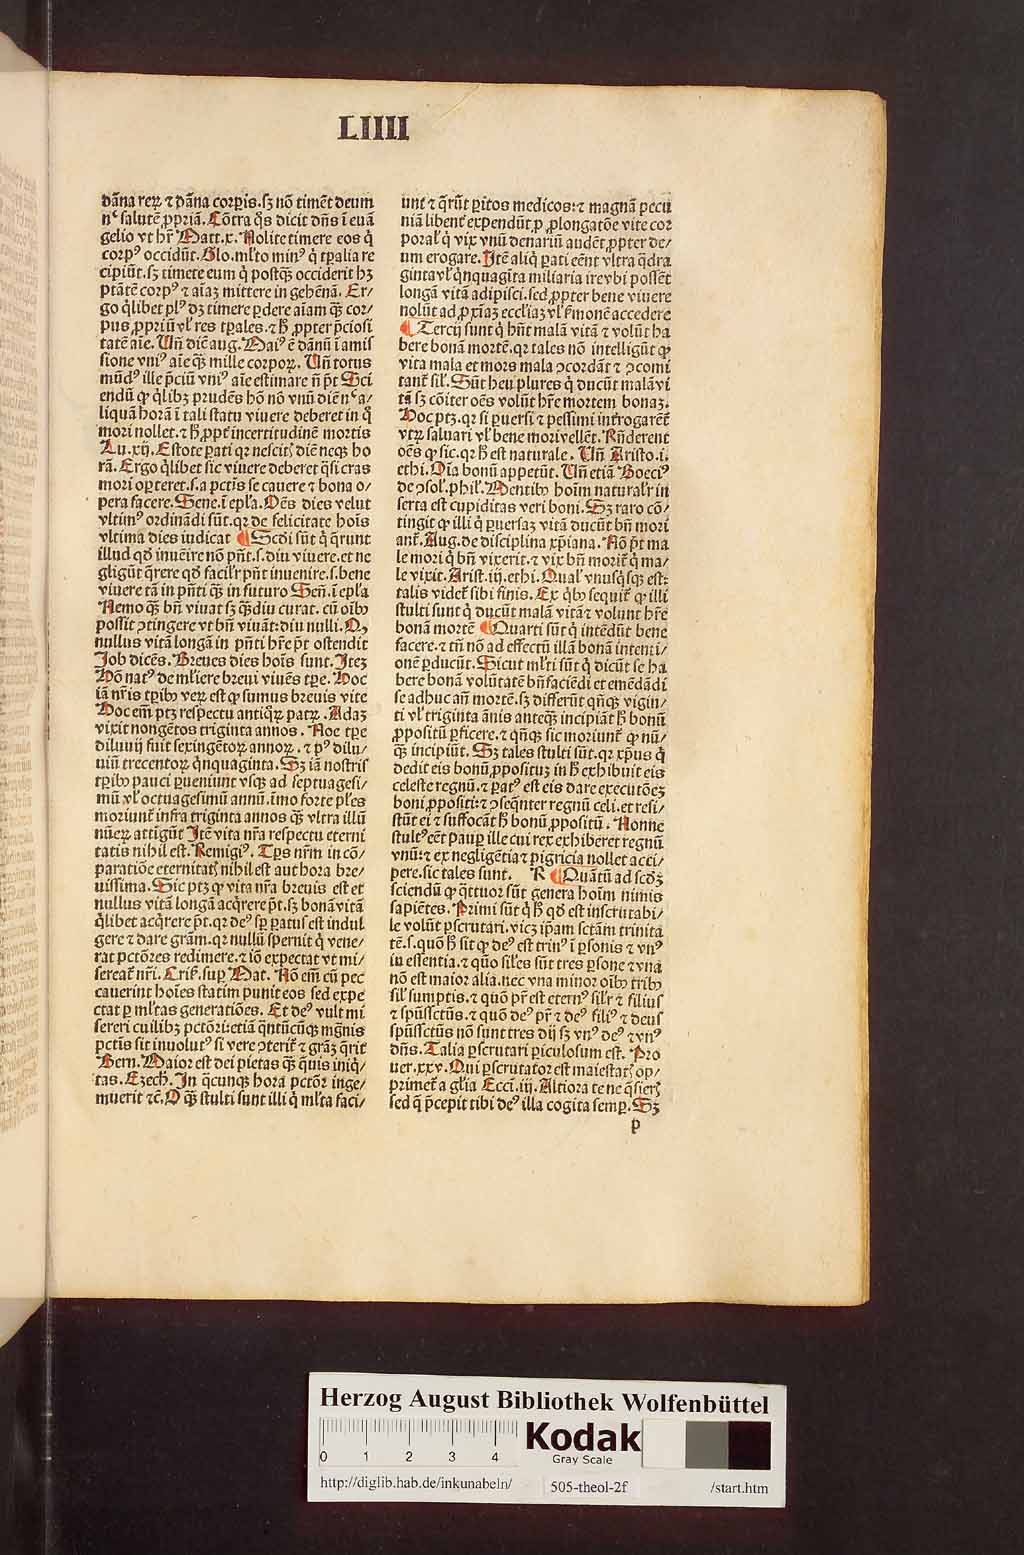 LIIII
dāna reꝝ ⁊ dāna corꝑis. sꝫ nō timēt deum
nᶜ salutē ꝓpriā. Cōtra q̄s dicit dn̄s ī euā
gelio vt hr̄ Matt. x. Nolite timere eos q̇
corpꝰ occidūt. Glo. ml̓to minꝰ q̇ tꝑalia re
cipiūt. sꝫ timete eum q̇ postqꝫ̄ occiderit hꝫ
ptātē corpꝰ ⁊ aīaꝫ mittere in gehēnā. Er/
go q̇libet plꝰ dꝫ timere ꝑdere aīam qꝫ̄ cor/
pus ꝓpriū vl̓ res tꝑales. ⁊ ħ ꝓpter p̄ciosi
tatē aīe. Vn̄ diē aug. Maiꝰ ē dānū ī amis
sione vniꝰ aīe qꝫ̄ mille corpoꝝ. Vn̄ totus
mūdꝰ ille p̄ciū vniꝰ aīe estimare n̄ pt̄ Sci
endū ꝙ q̇libꝫ prudēs hō nō vnū diē nᶜ a/
liquā horā ī tali statu viuere deberet in q̇
mori nollet. ⁊ ħ ꝓpt̓ incertitudinē mortis
Lu. xij. Estote ꝑati qr nescitꝭ diē neqꝫ ho
rā. Ergo q̇libet sic viuere deberet q̄si cras
mori oꝑteret. s. a pctīs se cauere ⁊ bona o/
pera facere. Sene. ī epl̓a. Oēs dies velut
vltimꝰ ordinādi sūt. qr de felicitate hoīs
vltima dies iudicat ¶ Scdi sūt q̇ q̄runt
illud qd̓ inuēire nō pn̄t. s. diu viuere. et ne
gligūt q̄rere qd̓ facil̓r pn̄t inuenire. s. bene
viuere tā in pn̄ti qꝫ̄ in futuro Sen̄. ī epl̓a
Nemo qꝫ̄ bn̄ viuat sꝫ qꝫ̄diu curat. cū oībꝫ
possit ꝯtingere vt bn̄ viuāt: diu nulli. Qꝫ
nullus vitā longā in pn̄ti hr̄e pt̄ ostendit
Job dicēs. Breues dies hoīs sunt. Iteꝫ
Hō natꝰ de ml̓iere breui viuēs tꝑe. Hoc
iā nr̄is tꝑibꝫ veꝝ est ꝙ sumus breuis vite
Hoc em̄ ptꝫ respectu antiq̇ꝝ patꝝ. Adaꝫ
vixit nongētos triginta annos. Noe tꝑe
diluuij fuit sexingētoꝝ annoꝝ. ⁊ pꝰ dilu/
uiū trecentoꝝ q̇nquaginta. Sꝫ iā nostris
tꝑibꝫ pauci ꝑueniunt vsqꝫ ad septuagesi/
mū vl̓ octuagesimū annū. īmo forte pl̓es
moriunt̓ infra triginta annos qꝫ̄ vltra illū
nūeꝝ attigūt Itē vita nr̄a respectu eterni
tatis nihil est. Remigiꝰ. Tꝑs nr̄m in cō/
paratiōe eternitatꝭ nihil est aut hora bre/
uissima. Sic ptꝫ ꝙ vita nr̄a breuis est et
nullus vitā longā acq̇rere pt̄. sꝫ bonā vitā
q̇libet acq̇rere pt̄. qr deꝰ sꝑ ꝑatus est indul
gere ⁊ dare grām. qr nullū spernit q̇ vene/
rat pctōres redimere. ⁊ iō expectat vt mi/
sereat̓ nr̄i. Cris̓. suꝑ Mat. Nō em̄ cū pec
cauerint hoīes statim punit eos sed expe
ctat ꝑ ml̓tas generatiōes. Et deꝰ vult mi
sereri cuilibꝫ pctōri: etiā q̄ntūcūqꝫ mḡnis
pctīs sit inuolutꝰ si vere ꝯterit̓ ⁊ grāꝫ q̄rit
Bern. Maior est dei pietas qꝫ̄ q̄uis iniq̇/
tas. Ezech̓. In q̄cunqꝫ hora pctōr inge/
muerit ⁊c̄. O qꝫ̄ stulti sunt illi q̇ ml̓ta faci/
unt ⁊ q̄rūt ꝑitos medicos: ⁊ magnā pecu
niā libent̓ expendūt ꝓ ꝓlongatōe vite cor
poral̓ q̇ vix vnū denariū audēt ꝓpter de/
um erogare. Itē aliq̇ ꝑati eēnt vltra q̄dra
ginta vl̓ q̇nquagīta miliaria ire vbi possēt
longā vitā adipisci. sed ꝓpter bene viuere
nolūt ad ꝓximaꝫ eccl̓iaꝫ vl̓ s̓monē accedere
¶ Tercij sunt q̇ hn̄t malā vitā ⁊ volūt ha
bere bonā mortē. qr tales nō intelligūt ꝙ
vita mala et mors mala ꝯcordāt ⁊ ꝯcomi
tant̓ sil̓. Sūt heu plures q̇ ducūt malā vi
tā sꝫ cōiter oēs volūt hr̄e mortem bonaꝫ.
Hoc ptꝫ. qr si ꝑuersi ⁊ pessimi int̓rogarēt̓
vtꝝ saluari vl̓ bene mori vellēt. Rn̄derent
oēs ꝙ sic. qr ħ est naturale. Vn̄ Aristo. i.
ethi. Oīa bonū appetūt. Vn̄ etiā Boeciꝰ
de ꝯsol̓. phil̓. Mentibꝫ hoīm natural̓r in
serta est cupiditas veri boni. Sꝫ raro cō/
tingit ꝙ illi q̇ ꝑuersaꝫ vitā ducūt bn̄ mori
ant̓. Aug. de disciplina xp̄iana. Nō pt̄ ma
le mori q̇ bn̄ vixerit. ⁊ vix bn̄ morit̓ q̇ ma/
le vixit. Arist. iij. ethi. Qual̓ vnusq̇sqꝫ est:
talis videt̓ sibi finis. Ex q̇bꝫ sequit̓ ꝙ illi
stulti sunt q̇ ducūt malā vitā ⁊ volunt hr̄e
bonā mortē ¶ Quarti sūt q̇ intēdūt bene
facere. ⁊ tn̄ nō ad effectū illā bonā intenti/
onē ꝑducūt. Sicut ml̓ti sūt q̇ dicūt se ha
bere bonā volūtatē bn̄faciēdi et emēdādi
se adhuc an̄ mortē. sꝫ differūt qn̄qꝫ vigin/
ti vl̓ triginta ānis anteqꝫ̄ incipiāt ħ bonū
ꝓpositū ꝑficere. ⁊ qn̄qꝫ sic moriunt̓ ꝙ nū/
qꝫ̄ incipiūt. Sꝫ tales stulti sūt. qr xp̄us q̇
dedit eis bonū ꝓposituꝫ in ħ exhibuit eis
celeste regnū. ⁊ ꝑatꝰ est eis dare executōeꝫ
boni ꝓpositi: ⁊ ꝯseq̄nter regnū celi. et resi/
stūt ei ⁊ suffocāt ħ bonū ꝓpositū. Nonne
stultꝰ eēt pauꝑ ille cui rex exhiberet regnū
vnū: ⁊ ex negligētia ⁊ pigricia nollet acci/
pere. sic tales sunt. R ¶ Quātū ad scd̓ꝫ
sciendū ꝙ q̄ttuor sūt genera hoīm nimis
sapiētes. Primi sūt q̇ ħ qd̓ est inscrutabi/
le volūt ꝑscrutari. vicꝫ ip̄am sctām trinita
tē. s. quō ħ sit ꝙ deꝰ est trinꝰ ī ꝑsonis ⁊ vnꝰ
in essentia. ⁊ quō sil̓es sūt tres ꝑsone ⁊ vna
nō est maior alia. nec vna minor oībꝫ tribꝫ
sil̓ sumptis. ⁊ quō pr̄ est eternꝰ sil̓r ⁊ filius
⁊ spūssctūs. ⁊ quō deꝰ pr̄ ⁊ deꝰ filiꝰ ⁊ deus
spūssctūs nō sunt tres dij sꝫ vnꝰ deꝰ ⁊ vnꝰ
dn̄s. Talia ꝑscrutari ꝑiculosum est. Pro
uer. xxv. Qui ꝑscrutator est maiestatꝭ op/
primet̓ a gl̓ia Ecci. iij. Altiora te ne q̄sierꝭ
sed q̄ p̄cepit tibi deꝰ illa cogita semꝑ. Sꝫ
p
Herzog August Bibliothek Wolfenbüttel
0 1 2 3 4
Kodak
Gray Scale
http://diglib.hab.de/inkunabeln/ 505-theol-2f /start.htm